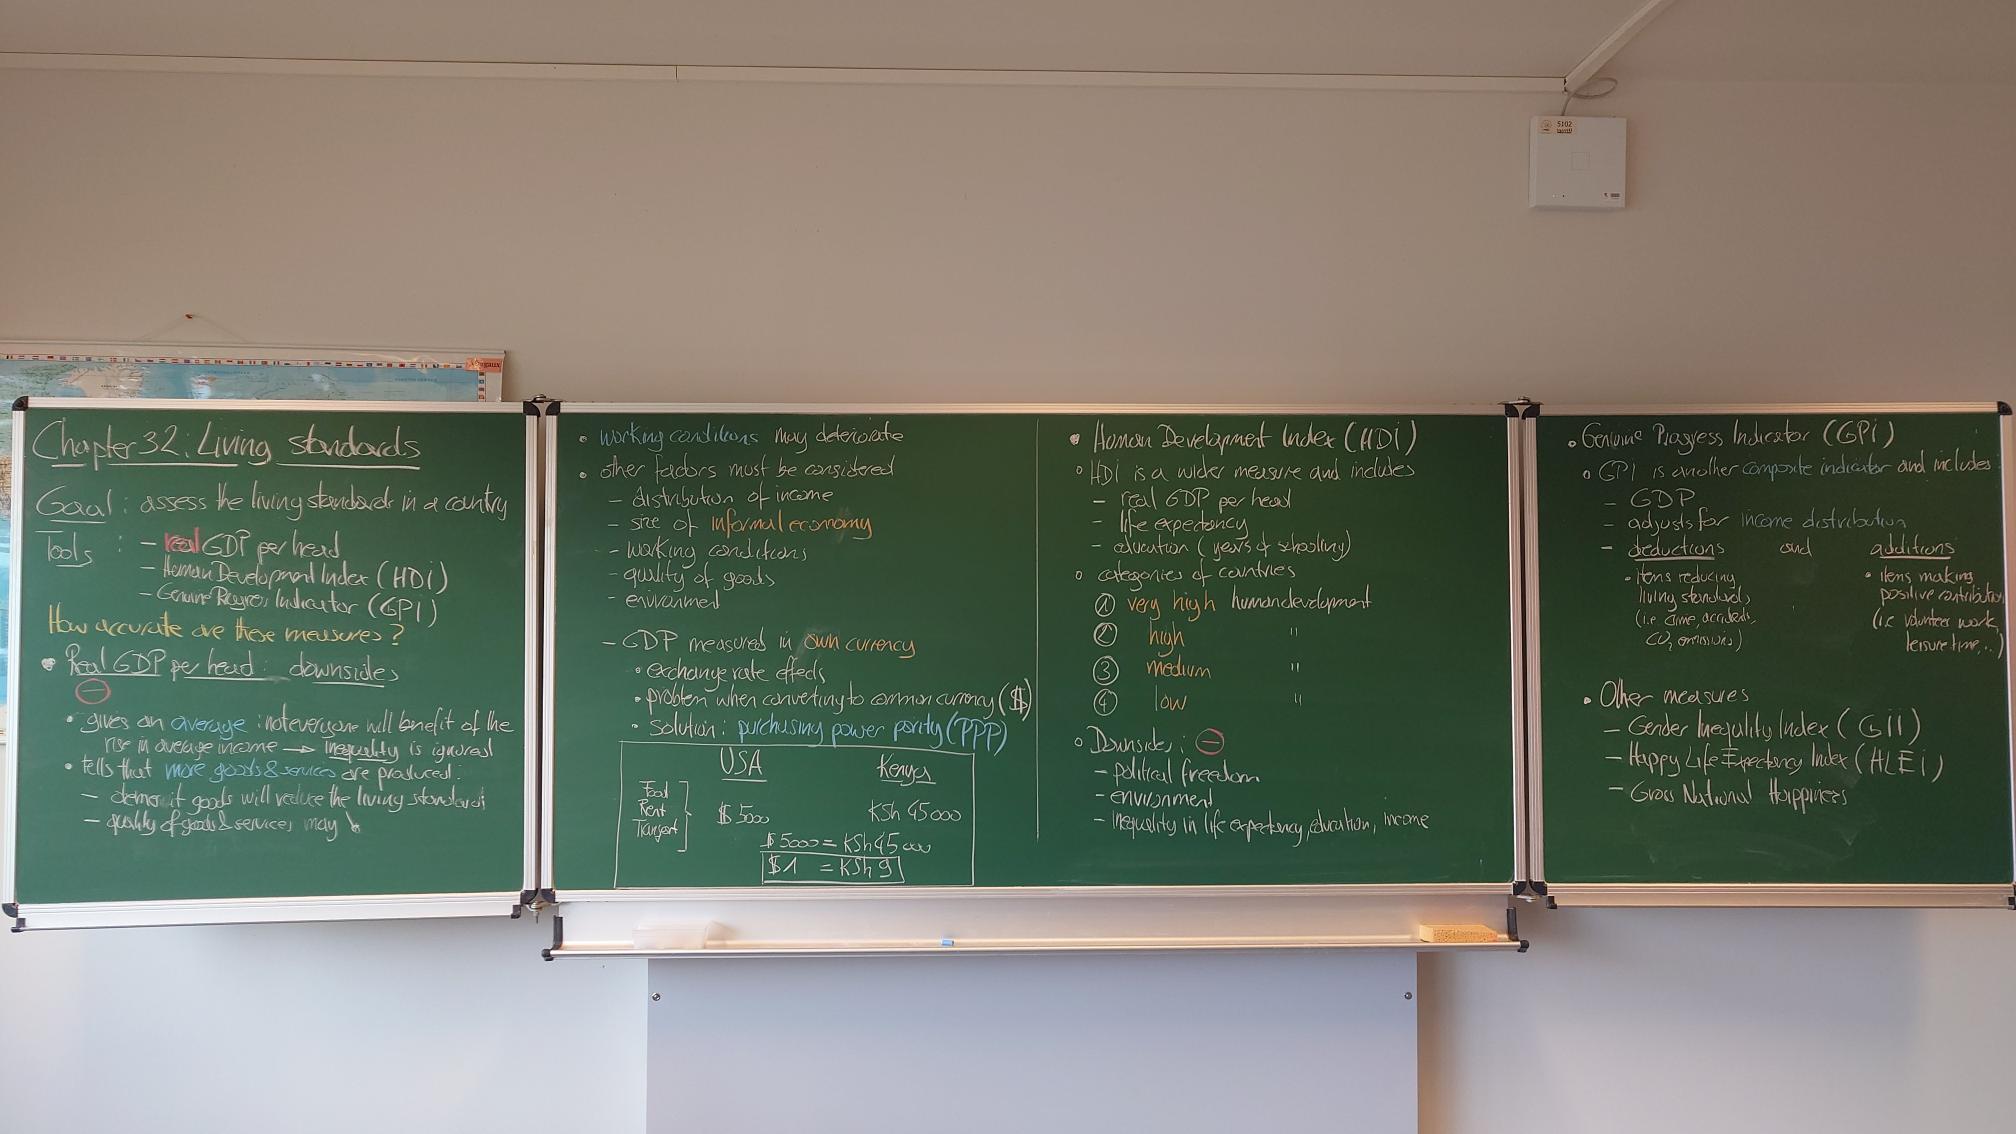 Chapter 32: Living standards
Goal: assess the living standards in a country
Tools: – real GDP per head
– Human Development Index (HDI)
– Genuine Progress Indicator (GPI)
How accurate are these measures?
• Real GDP per head: downsides
⊖
• gives an average: not everyone will benefit of the
rise in average income → inequality is ignored
• tells that more goods & services are produced:
– demerit goods will reduce the living standards
– quality of goods & services may ↓
• working conditions may deteriorate
• other factors must be considered
– distribution of income
– size of informal economy
– working conditions
– quality of goods
– environment
– GDP measured in own currency
• exchange rate effects
• problem when converting to common currency ($)
• solution: purchasing power parity (PPP)
USA Kenya
Food
Rent
Transport
$ 5000 KSh 45000
$ 5000 = KSh 45 000
$ 1 = KSh 9
• Human Development Index (HDI)
◦ HDI is a wider measure and includes
– real GDP per head
– life expectency
– education (years of schooling)
◦ categories of countries
① very high human development
② high "
③ medium "
④ low "
◦ Downsides: ⊖
– political freedom
– environment
– inequality in life expectancy, education, income
• Genuine Progress Indicator (GPI)
◦ GPI is another composite indicator and includes
– GDP
– adjusts for income distribution
– deductions and additions
• items reducing
living standards
(i.e crime, accidents,
CO₂ emissions)
• items making
positive contribution
(i.e volunteer work,
leisure time,..)
• Other measures
– Gender Inequality Index (GII)
– Happy Life Expectancy Index (HLEI)
– Gross National Happiness
5102